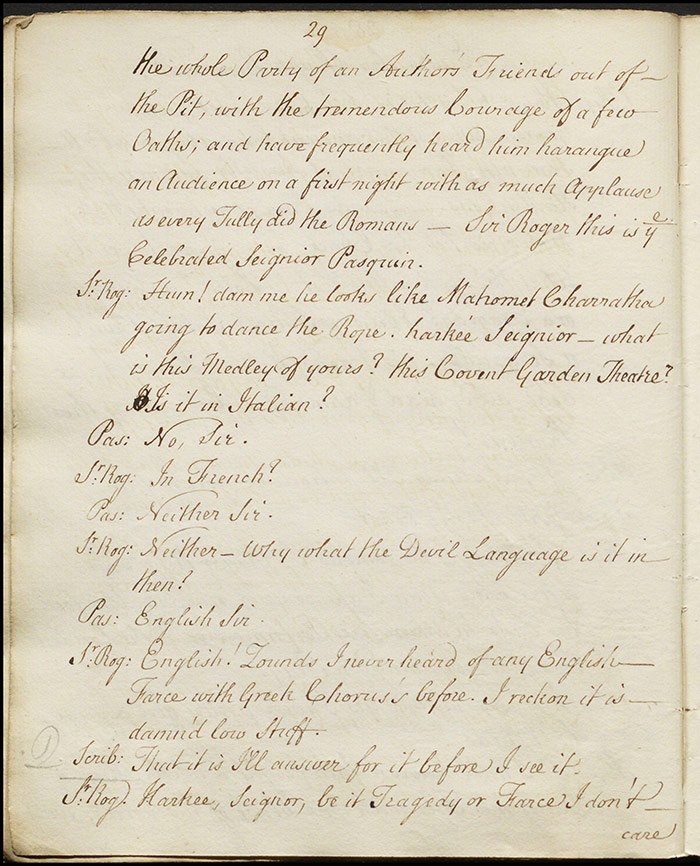 29
the whole Party of an Author's Friends out of—
the Pit, with the tremendous Courage of a few
Oaths; and have frequently heard him harangue
an Audience on a first night with as much Applause
as every Tully did the Romans — Sir Roger this is yᵉ
Celebrated Seignior Pasquin.
Sr. Rog: Hum! dam me he looks like Mahomet Charratha
going to dance the Rope. harkée Seignior — what
is this Medley of yours? this Covent Garden Theatre?
Is it in Italian?
Pas: No, Sir.
Sr. Rog: In French?
Pas: Neither Sir.
Sr. Rog: Neither — Why what the Devil Language is it in
then?
Pas: English Sir.
Sr. Rog: English! Zounds I never heard of any English—
Farce with Greek Chorus's before. I reckon it is—
damn'd low Stuff.
Scrib: That it is I'll answer for it before I see it.
Sr. Rog. Harkee, Seignor, be it Tragedy or Farce I don't—
care